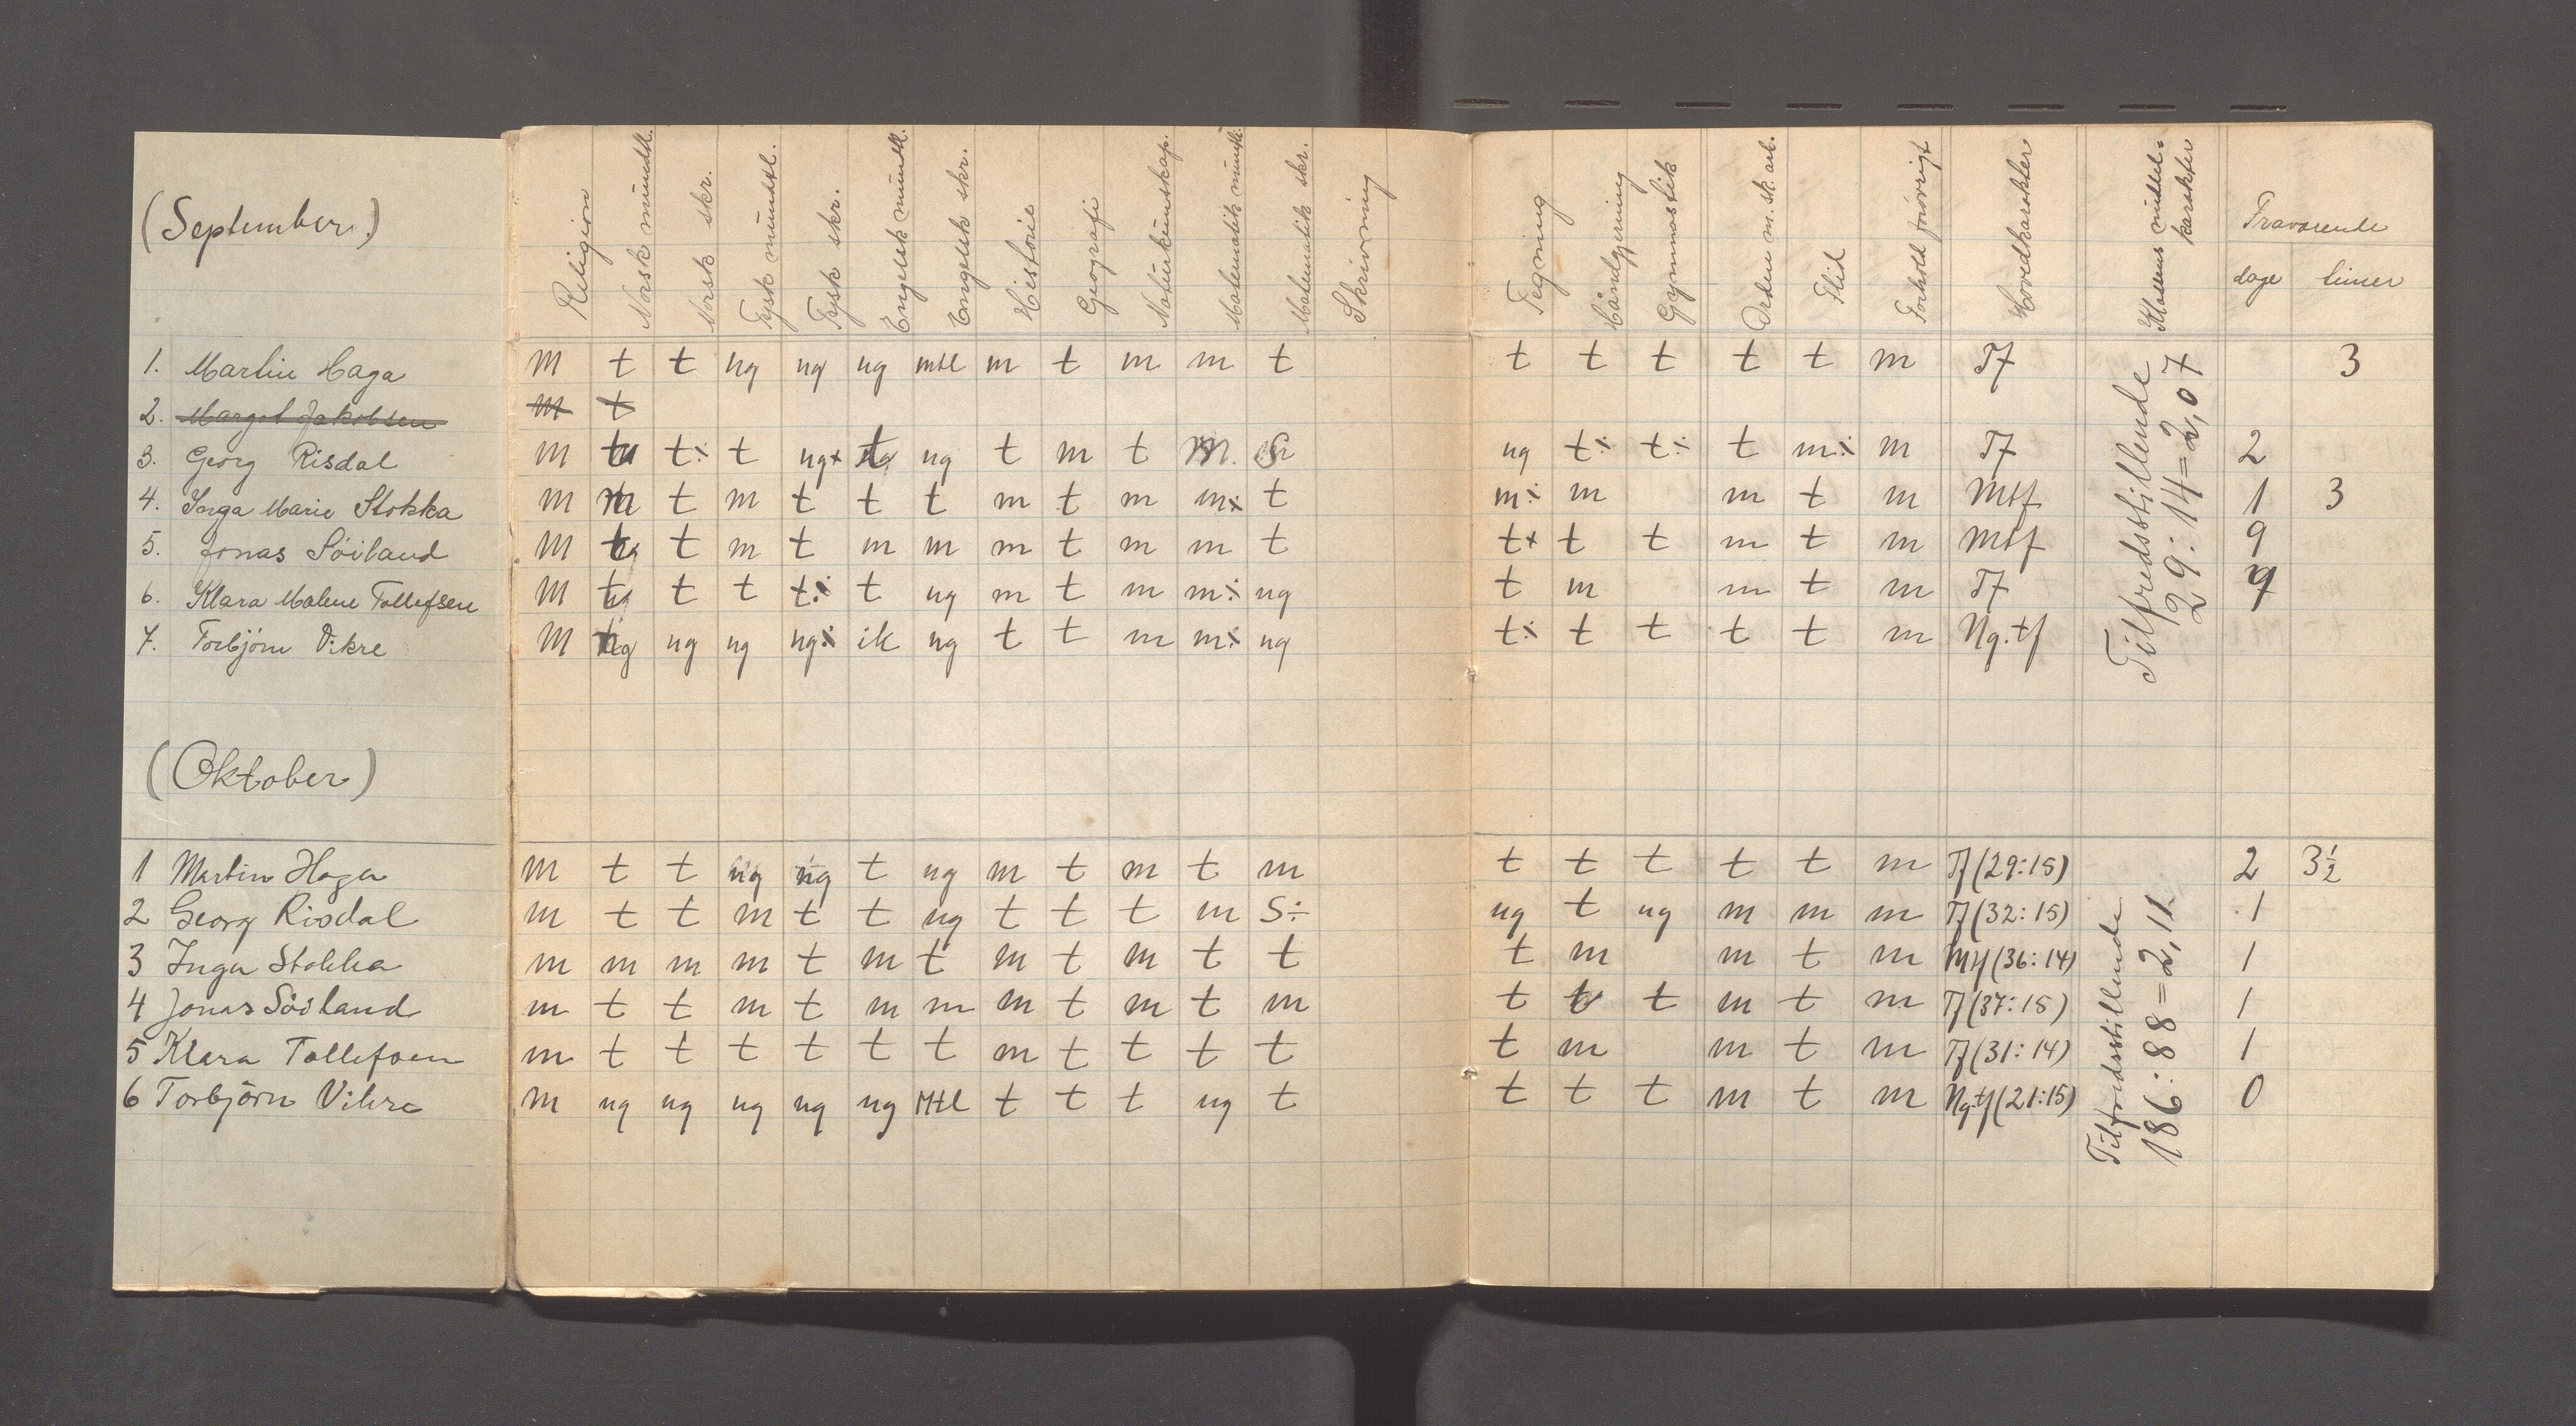 (September.)
Religion Norsk mundtl. Norsk skr. Tysk mundtl. Tysk skr. Engelsk mundtl. Engelsk skr. Historie Geografi Naturkundskap. Matematik mundtl. Matematik skr. Skrivning Tegning Håndgjerning Gymnastik Orden m. sk. arb. Flid Forhold forøvrigt Hovedkarakter Klassens middel-karakter Fraværende
dage timer
1. Martin Haga M t t ng ng ng mtl m t m m t t t t t t m Tf 3
2. Margot Jakobsen m t
3. Georg Risdal M t t÷ t ng+ ng t m t M. S ng t÷ t÷ t m÷ m Tf 2
4. Inga Marie Stokka M m t m t t t m t m m÷ t m÷ m m t m Mtf 1 3
5. Jonas Söiland M t t m t m m m t m m t t+ t t m t m Mtf 9
6. Klara Malene Tollefsen M t t t t÷ t ng m t m m÷ ng t m m t m Tf
7. Torbjörn Vikre M ng ng ng ng÷ ik ng t t m m÷ ng t÷ t t t t m Ng.tf
Tilfredsstillende
29:14=2,07
(Oktober)
1 Martin Haga M t t ng ng t ng m t m t m t t t t t m Tf (29:15) 2 3½
2 Georg Risdal m t t m t t ng t t t m S÷ ng t ng m m m Tf (32:15) 1
3 Inga Stokka m m m m t m t m t m t t t m m t m Mtf (36:14) 1
4 Jonas Söiland m t t m t m m m t m t m t t t m t m Tf (37:15) 1
5 Klara Tollefsen m t t t t t t m t t t t t m m t m Tf (31:14) 1
6 Torbjörn Vikre M ng ng ng ng ng Mtl t t t ng t t t t m t m Ng.tf (21:15) 0
Tilfredsstillende
186:88=2,11